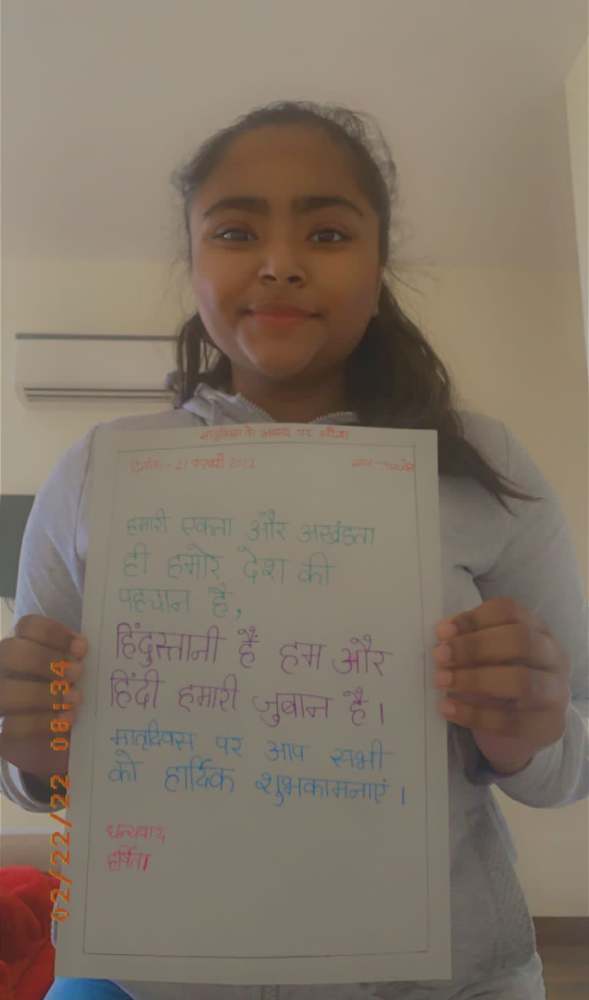 मातृदिवस के अवसर पर संदेश
दिनांक - 21 फरवरी 2022
हमारी एकता और अखंडता
ही हमारे देश की
पहचान है,
हिंदुस्तानी है हम और
हिंदी हमारी जुबान है।
मातृदिवस पर आप सभी
को हार्दिक शुभकामनाएं।
धन्यवाद
हर्षिता
02/22/22 08:34